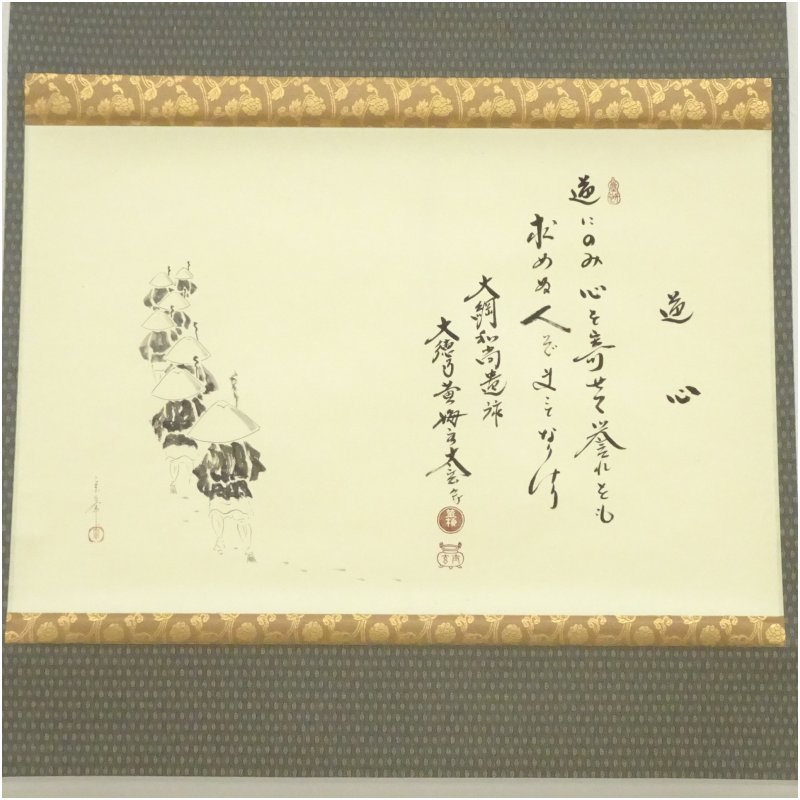 道心
道にのみ心を寄せて誉れをも
求めぬ人ぞまことなりけり
大綱和尚遺詠
大徳寺黄梅主大玄
黄梅